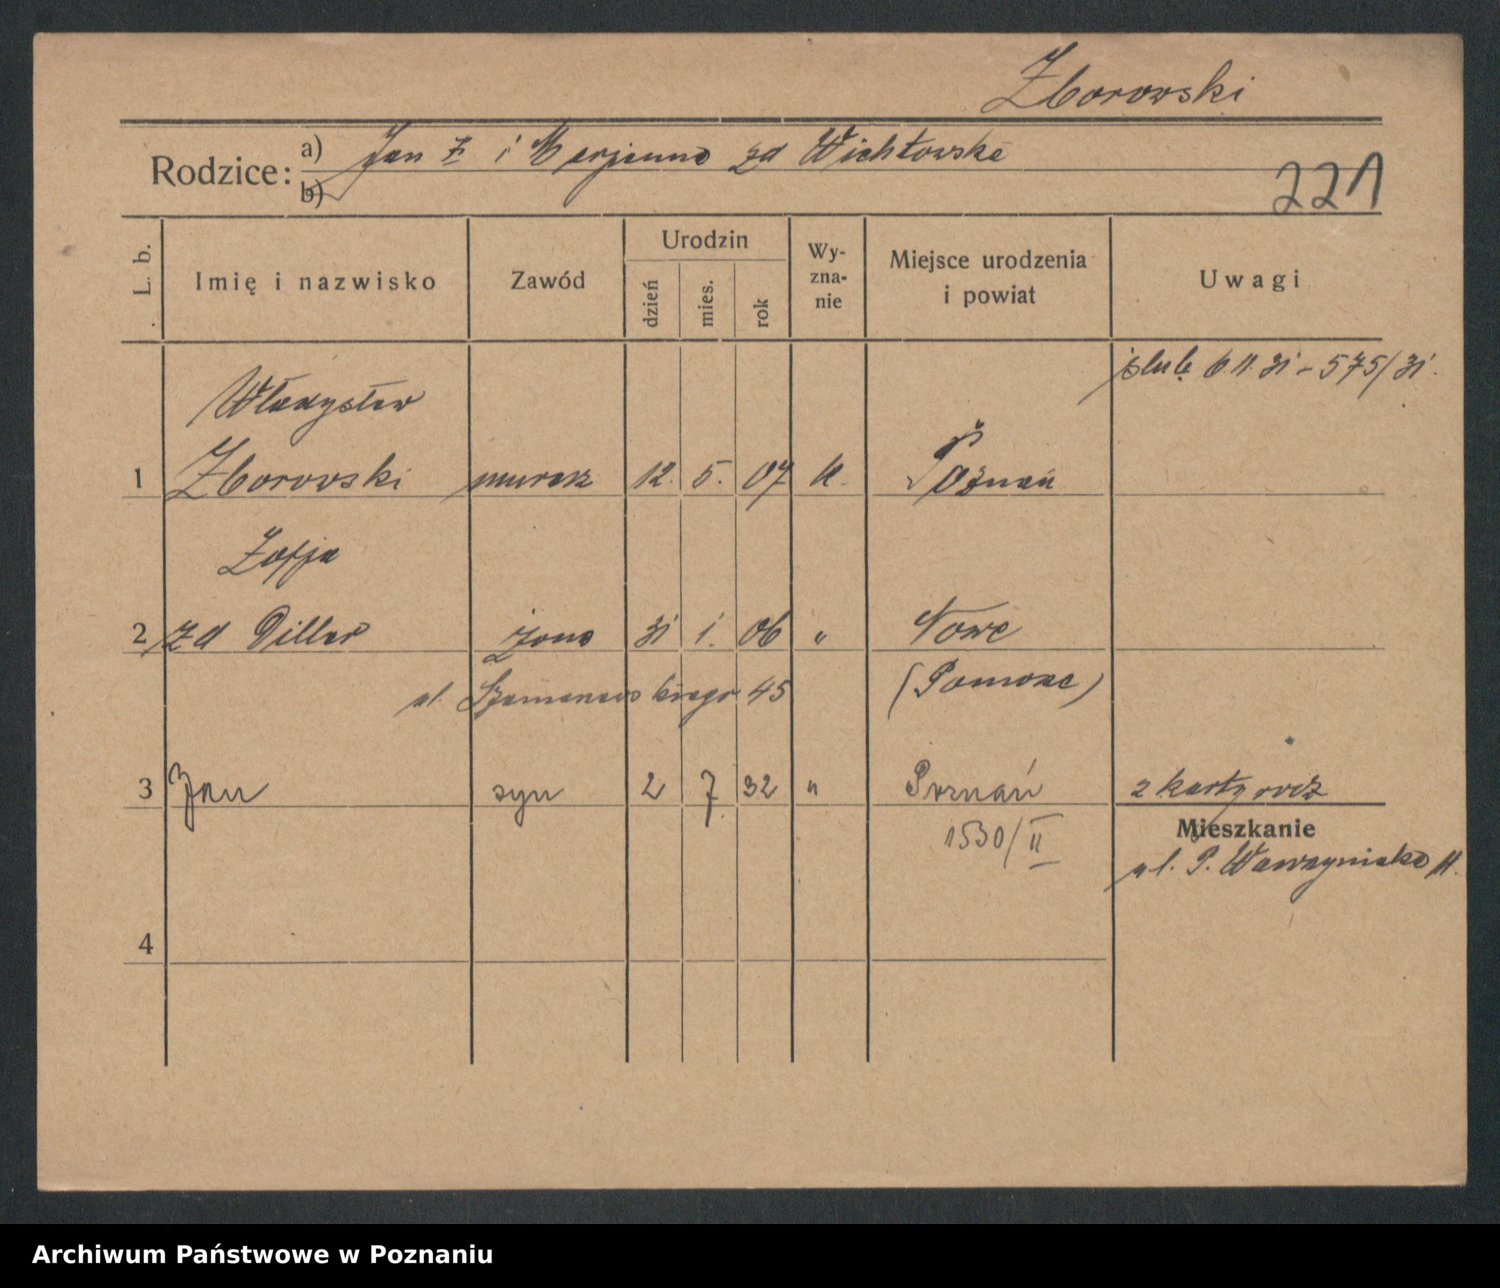 Zborowski
Rodzice:
a) Jan Z i Marjanna zd Wichłowska
b)
221
L. b.
Imię i nazwisko
Zawód
Urodzin
dzień
mies.
rok
Wy-
zna-
nie
Miejsce urodzenia
i powiat
Uwagi
ślub 6 11 31 - 575/31.
Władysław
1 Zborowski murarz 12. 5. 07 k. Poznań
Zofja
2 zd Diller żona 31 1. 06 " Nowe
ul. Szamarzewskiego 45 (Pomorze)
3 Jan syn 2 7 32 " Poznań z karty
1530/II
Mieszkanie
ul. P. Wawrzyniaka 11.
4
Archiwum Państwowe w Poznaniu